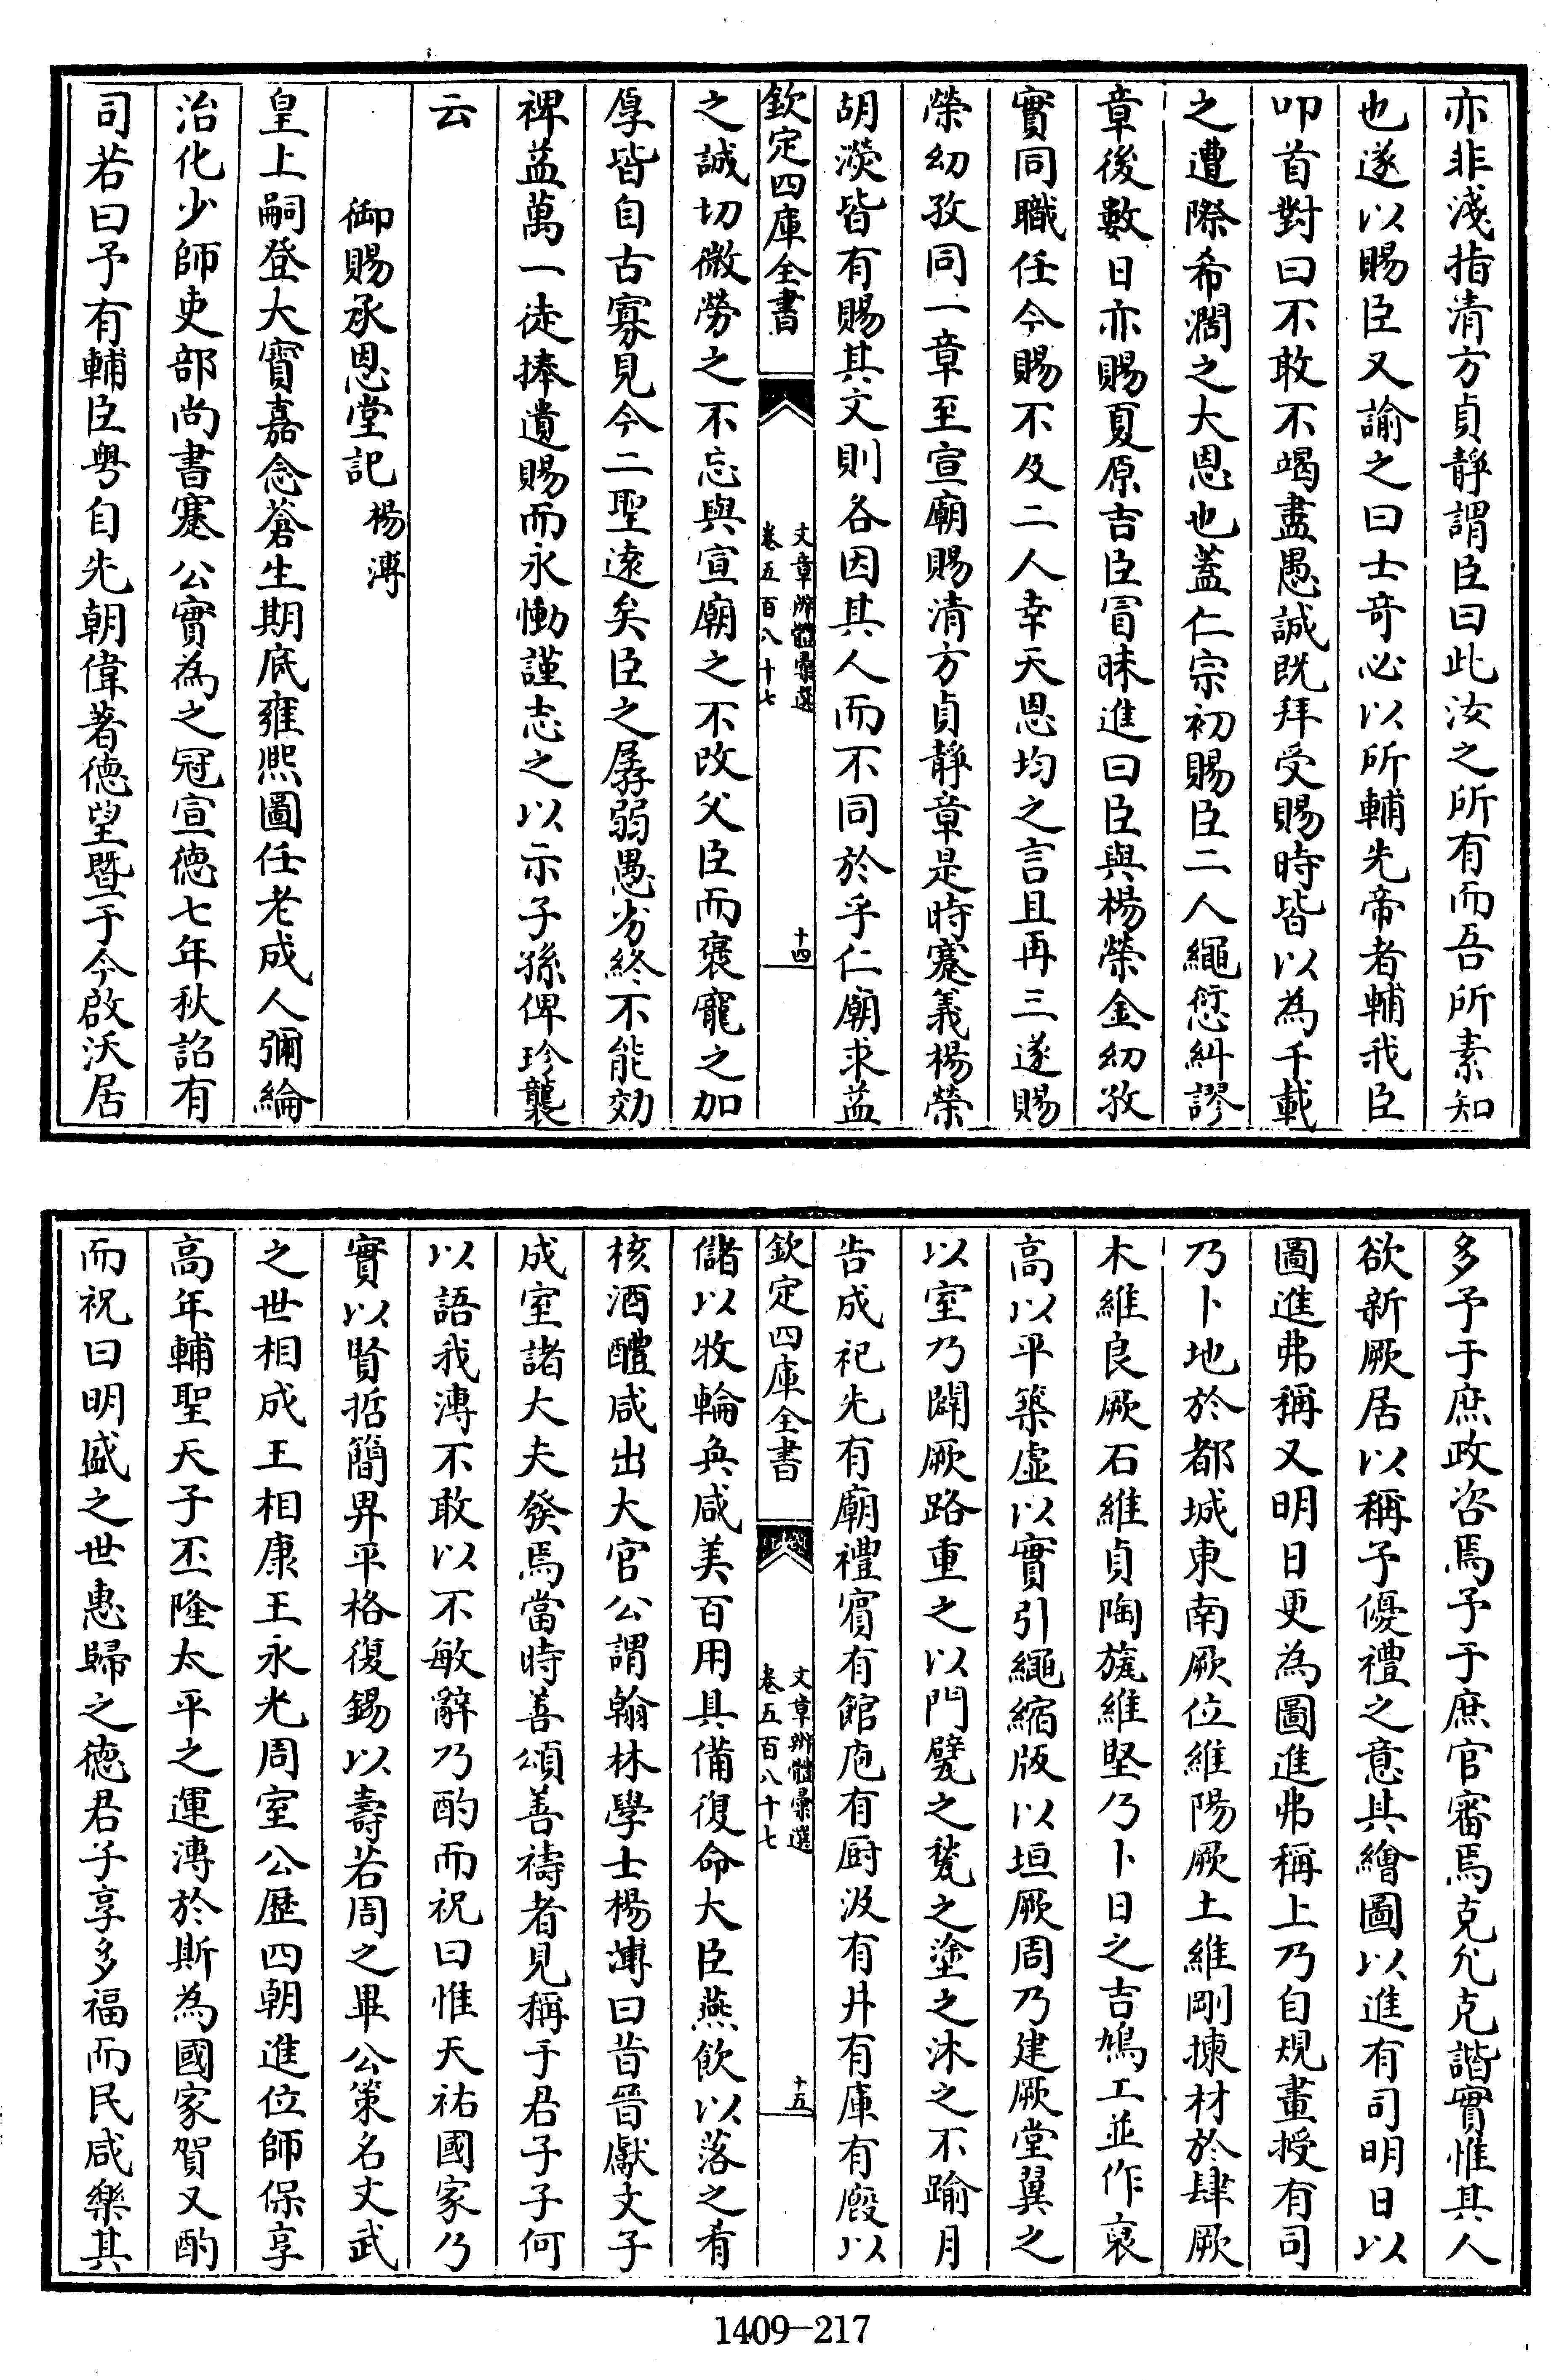 亦非淺指清方貞靜謂臣曰此汝之所有而吾所素知
也遂以賜臣又諭之曰士竒必以所輔先帝者輔我臣
叩首對曰不敢不竭盡愚誠既拜受賜時皆以為千載
之遭際希濶之大恩也葢仁宗初賜臣二人繩愆糾謬
章後數日亦賜夏原吉臣冒昧進曰臣與楊榮金幼孜
實同職任今賜不及二人幸天恩均之言且再三遂賜
榮幼孜同一章至宣廟賜清方貞靜章是時蹇義楊榮
胡濙皆有賜其文則各因其人而不同於乎仁廟求益
欽定四庫全書
文章辨體彙選
卷五百八十七
十四
之誠切微勞之不忘與宣廟之不改父臣而褒寵之加
厚皆自古寡見今二聖逺矣臣之孱弱愚劣終不能効
裨益萬一徒捧遺賜而永慟謹志之以示子孫俾珍襲
云
御賜承恩堂記 楊溥
皇上嗣登大寳嘉念蒼生期底雍熙圖任老成人彌綸
治化少師吏部尚書蹇公實為之冠宣德七年秋詔有
司若曰予有輔臣粤自先朝偉著德望暨于今啟沃居
多予于庶政咨焉予于庶官審焉克允克諧實惟其人
欲新厥居以稱予優禮之意其繪圖以進有司明日以
圖進弗稱又明日更為圖進弗稱上乃自規畫授有司
乃卜地於都城東南厥位維陽厥土維剛揀材於肆厥
木維良厥石維貞陶旊維堅乃卜日之吉鳩工並作裒
高以平築虛以實引繩縮版以垣厥周乃建厥堂翼之
以室乃闢厥路重之以門甓之甃之塗之沐之不踰月
告成祀先有廟禮賔有館庖有厨汲有井有庫有廏以
欽定四庫全書
文章辨體彙選
卷五百八十七
十五
儲以牧輪奐咸美百用具備復命大臣燕飲以落之肴
核酒醴咸出大官公謂翰林學士楊溥曰昔晉獻文子
成室諸大夫發焉當時善頌善禱者見稱于君子子何
以語我溥不敢以不敏辭乃酌而祝曰惟天祐國家乃
實以賢哲簡畀平格復錫以壽若周之畢公策名文武
之世相成王相康王永光周室公歴四朝進位師保享
高年輔聖天子丕隆太平之運溥於斯為國家賀又酌
而祝曰明盛之世惠歸之德君子享多福而民咸樂其
1409—217